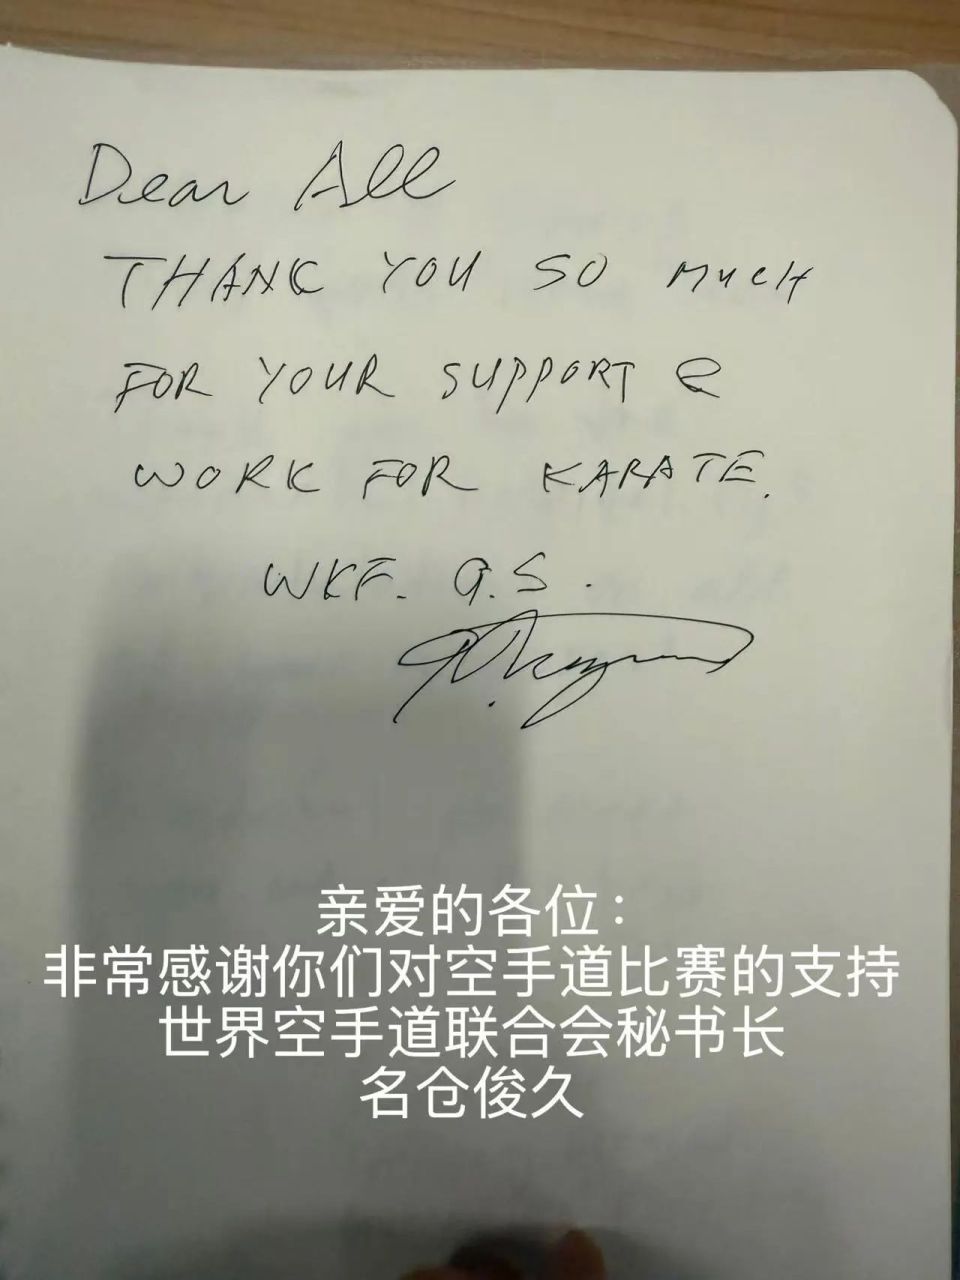 Dear All
THANK YOU SO MUCH
FOR YOUR SUPPORT &
WORK FOR KARATE.
WKF. G.S.
亲爱的各位：
非常感谢你们对空手道比赛的支持
世界空手道联合会秘书长
名仓俊久